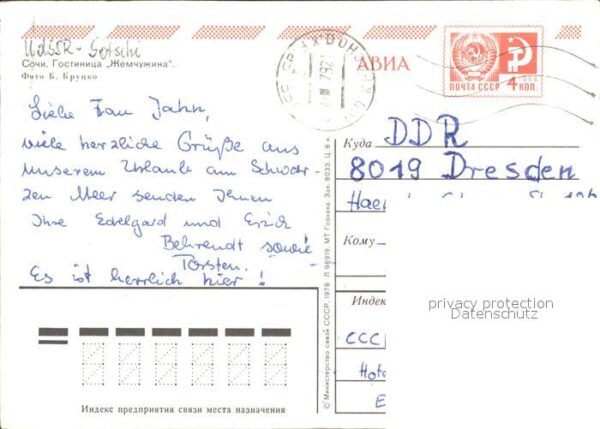 UdSSR - Sotschi
Сочи. Гостиница „Жемчужина".
Фото Б. Круцко
АВИА
ПОЧТА СССР 4 КОП.
Liebe Frau Jahn,
viele herzliche Grüße aus
unserem Urlaub am Schwar-
zen Meer senden Ihnen
Ihre Edelgard und Erich
Behrendt sowie
Torsten.
Es ist herrlich hier!
Куда DDR
8019 Dresden
Кому
Индек
СССР
Hote
© Министерство связи СССР. 1978
МТ Гознака. Зак. 8033. Ц. 8 к.
privacy protection
Datenschutz
Индекс предприятия связи места назначения